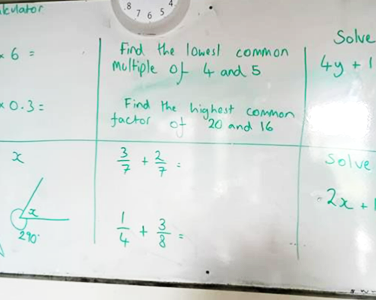 8 7 6 5 4
Solve
6 =
Find the lowest common
multiple of 4 and 5
4y + 1
0.3 =
Find the highest common
factor of 20 and 16
x
3/7 + 2/7 =
Solve
x
290°
2x +
1/4 + 3/8 =